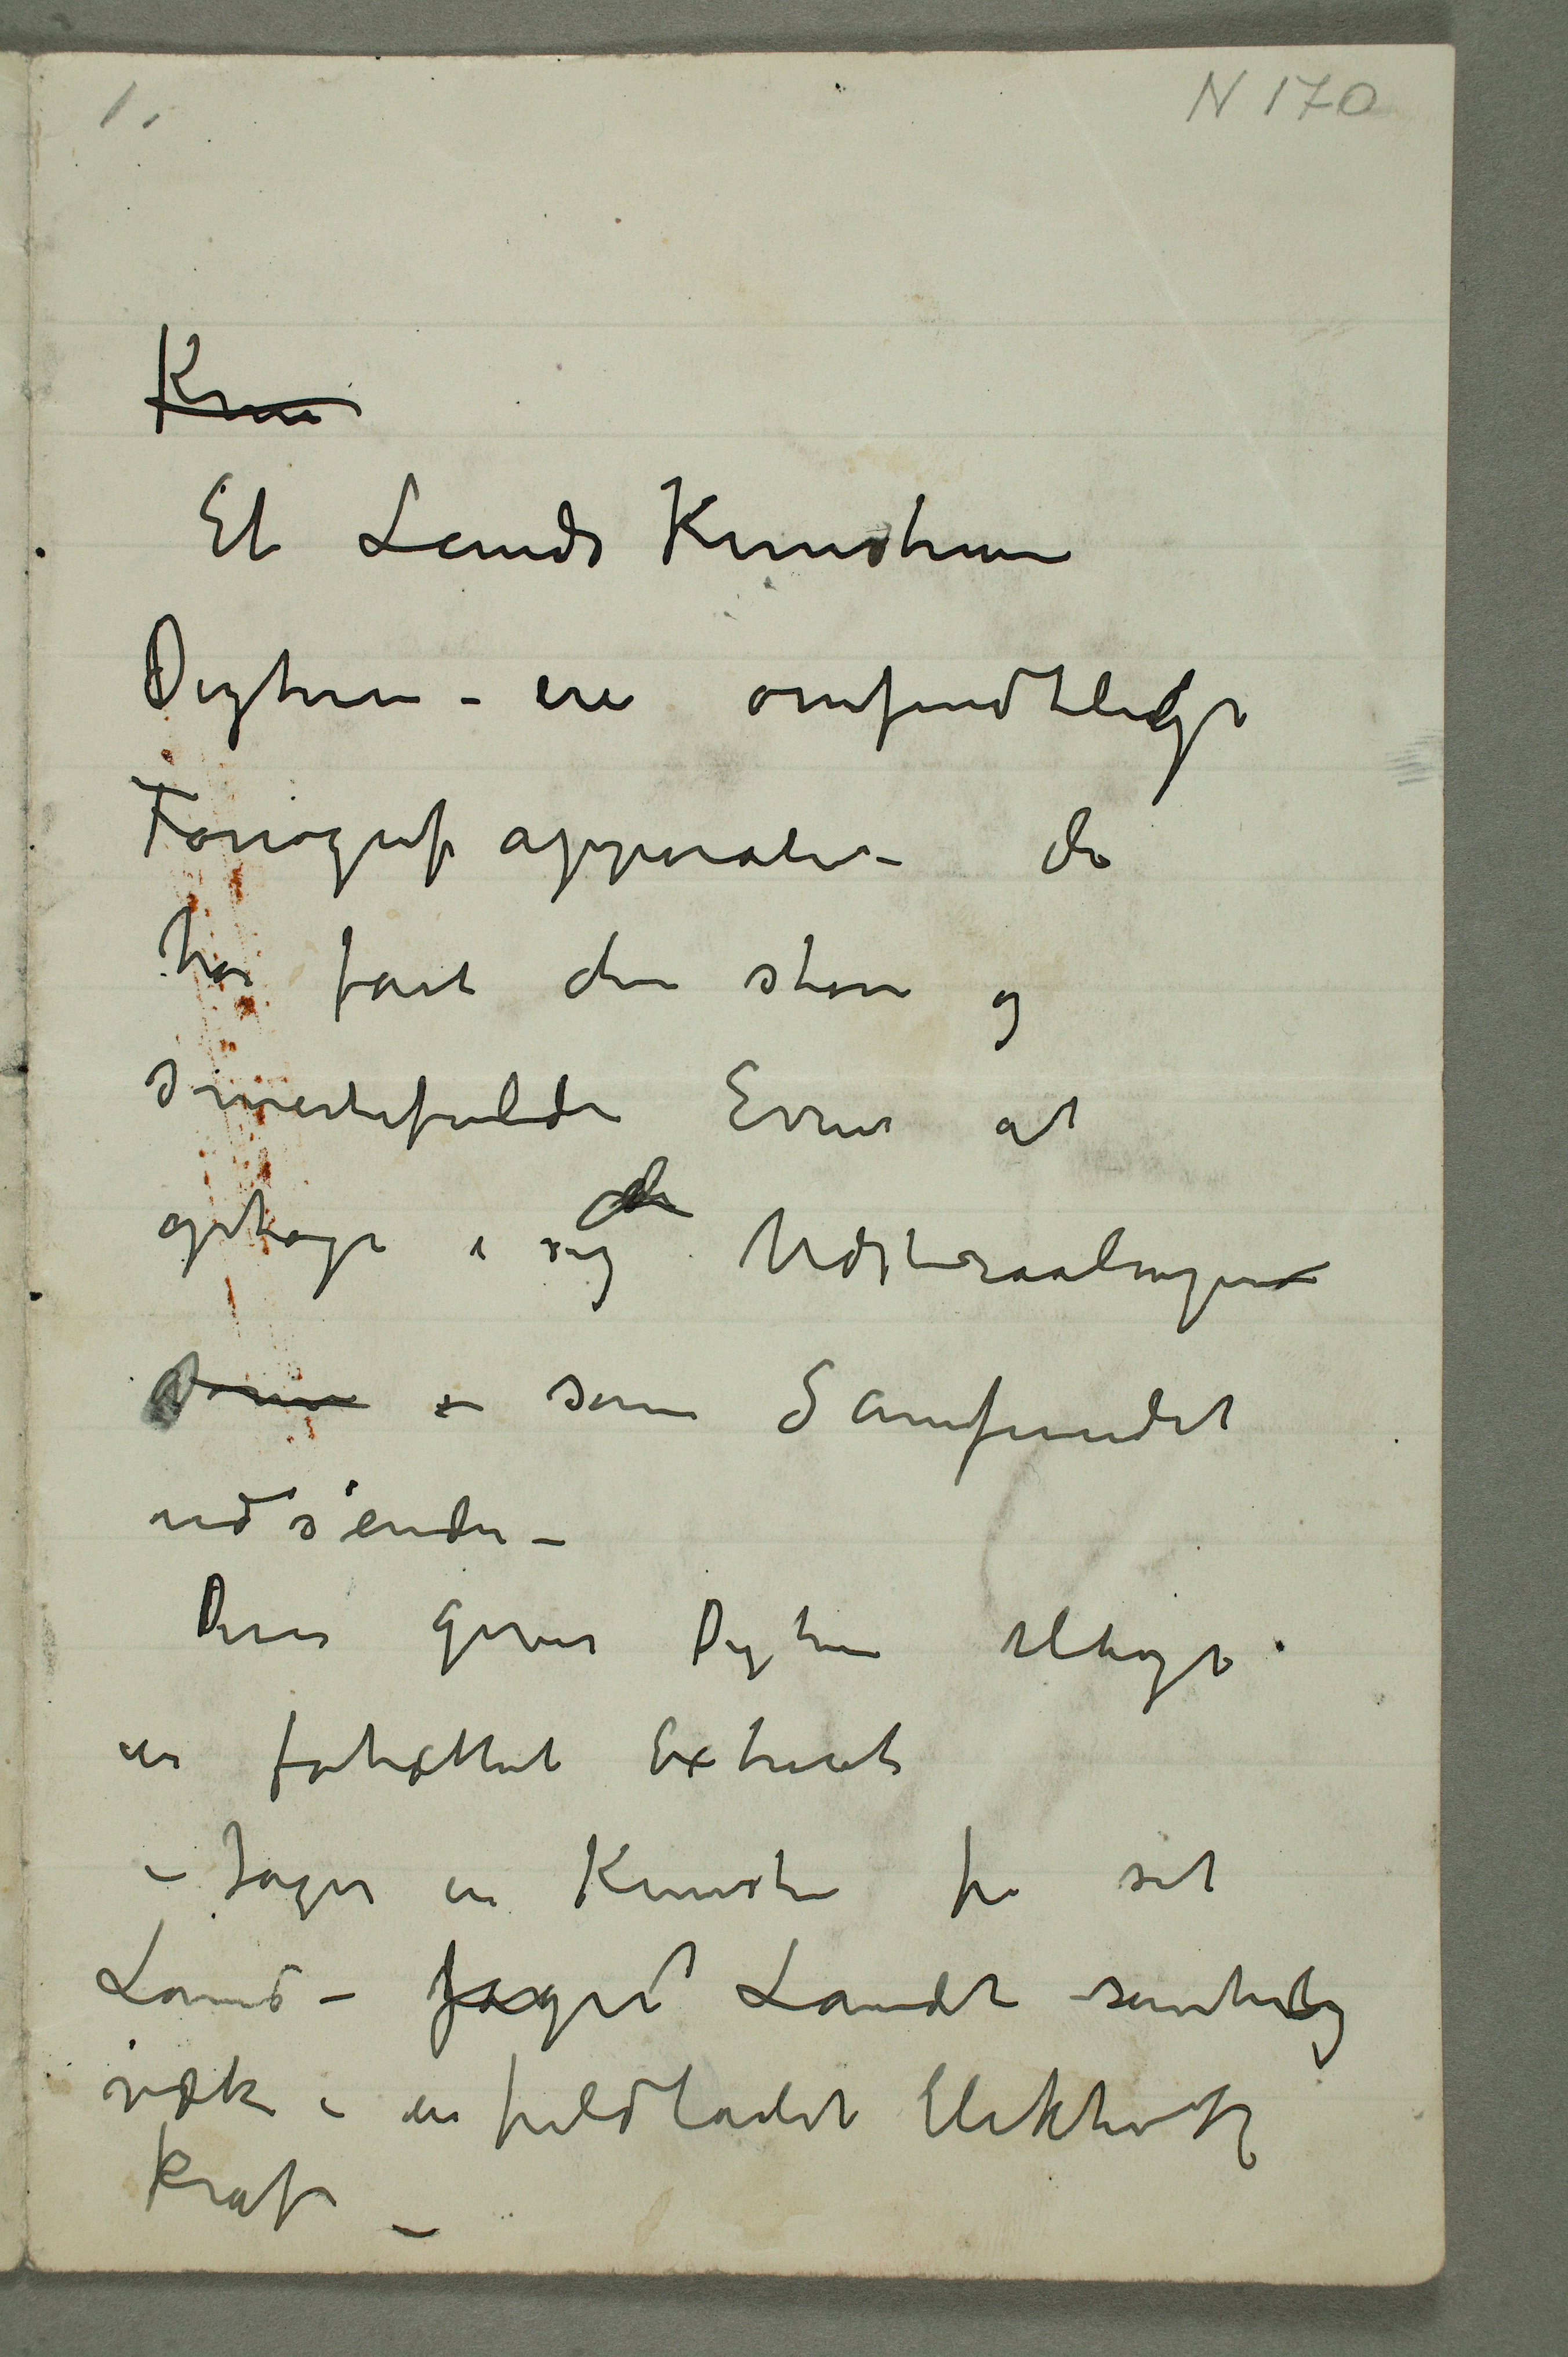 1.
N 170
Kun
Et Lands Kunstnere
Digtere – ere ømfindtlige
Fonografapparater – de
har faaet den store og
smertefulde Evne at
optage i sig de Udstraalinger
– som Samfundet
udsender –
Disse giver Digteren tilbage
en fortættet Extrakt
– Jager en Kunstner fra sit
Land – jages Landet samtidig
væk – en fuldladet Elektrisk
Kraft –